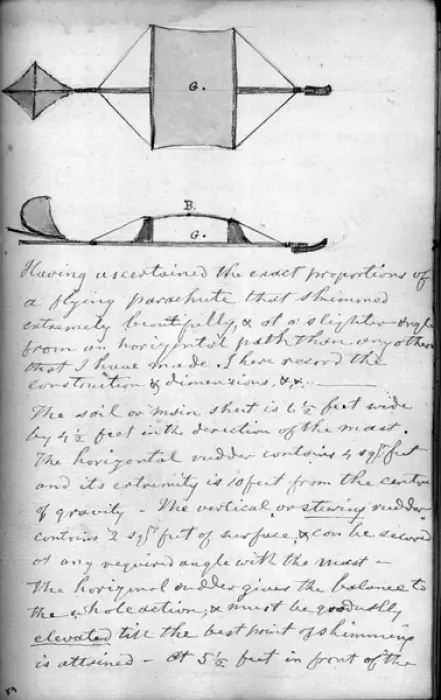 G.
B.
G.
Having ascertained the exact proportions of
a flying parachute that skimmed
extremely beautifully, & at a slighter angle
from an horizontal path than any other
that I have made. I here record the
construction & dimensions, &c. ———
The sail or main sheet is 6½ feet wide
by 4½ feet in the direction of the mast.
The horizontal rudder contains 4 sqr feet
and its extremity is 10 feet from the centre
of gravity – The vertical or steering rudder
contains 2 sqr feet of surface, & can be secured
at any required angle with the mast –
The horizonal rudder gives the balance to
the whole action, & must be gradually
elevated till the best point of skimming
is attained – At 5½ feet in front of the